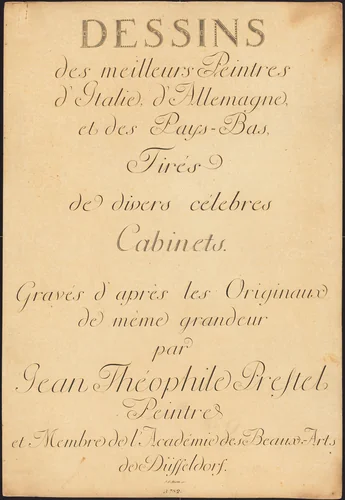 DESSINS
des meilleurs Peintres
d'Italie, d'Allemagne,
et des Pays-Bas,
Tirés
de divers célèbres
Cabinets.
Gravés d'après les Originaux
de même grandeur
par
Jean Théophile Prestel
Peintre
et Membre de l'Académie des Beaux-Arts
de Düsseldorf.